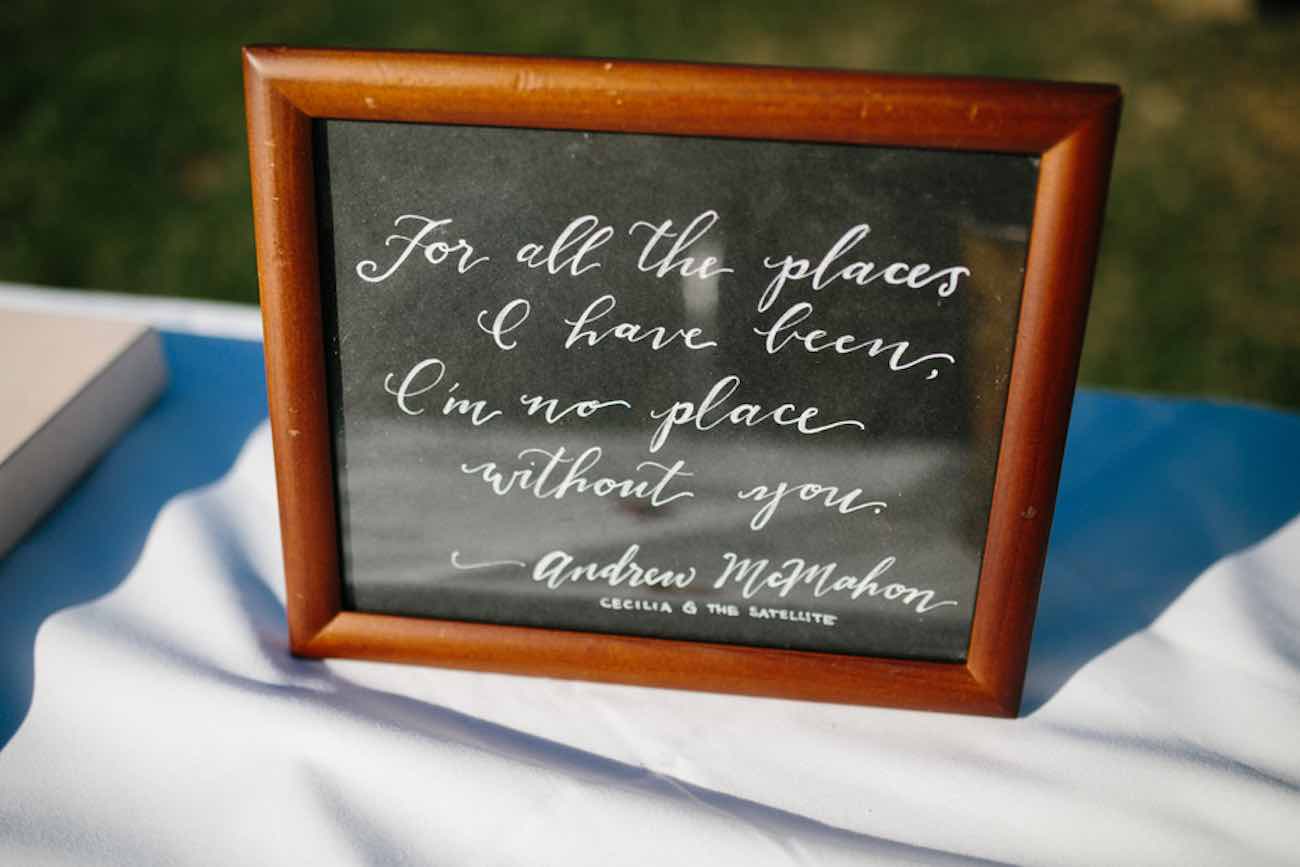 For all the places
I have been,
I'm no place
without you.
— Andrew McMahon
CECILIA & THE SATELLITE